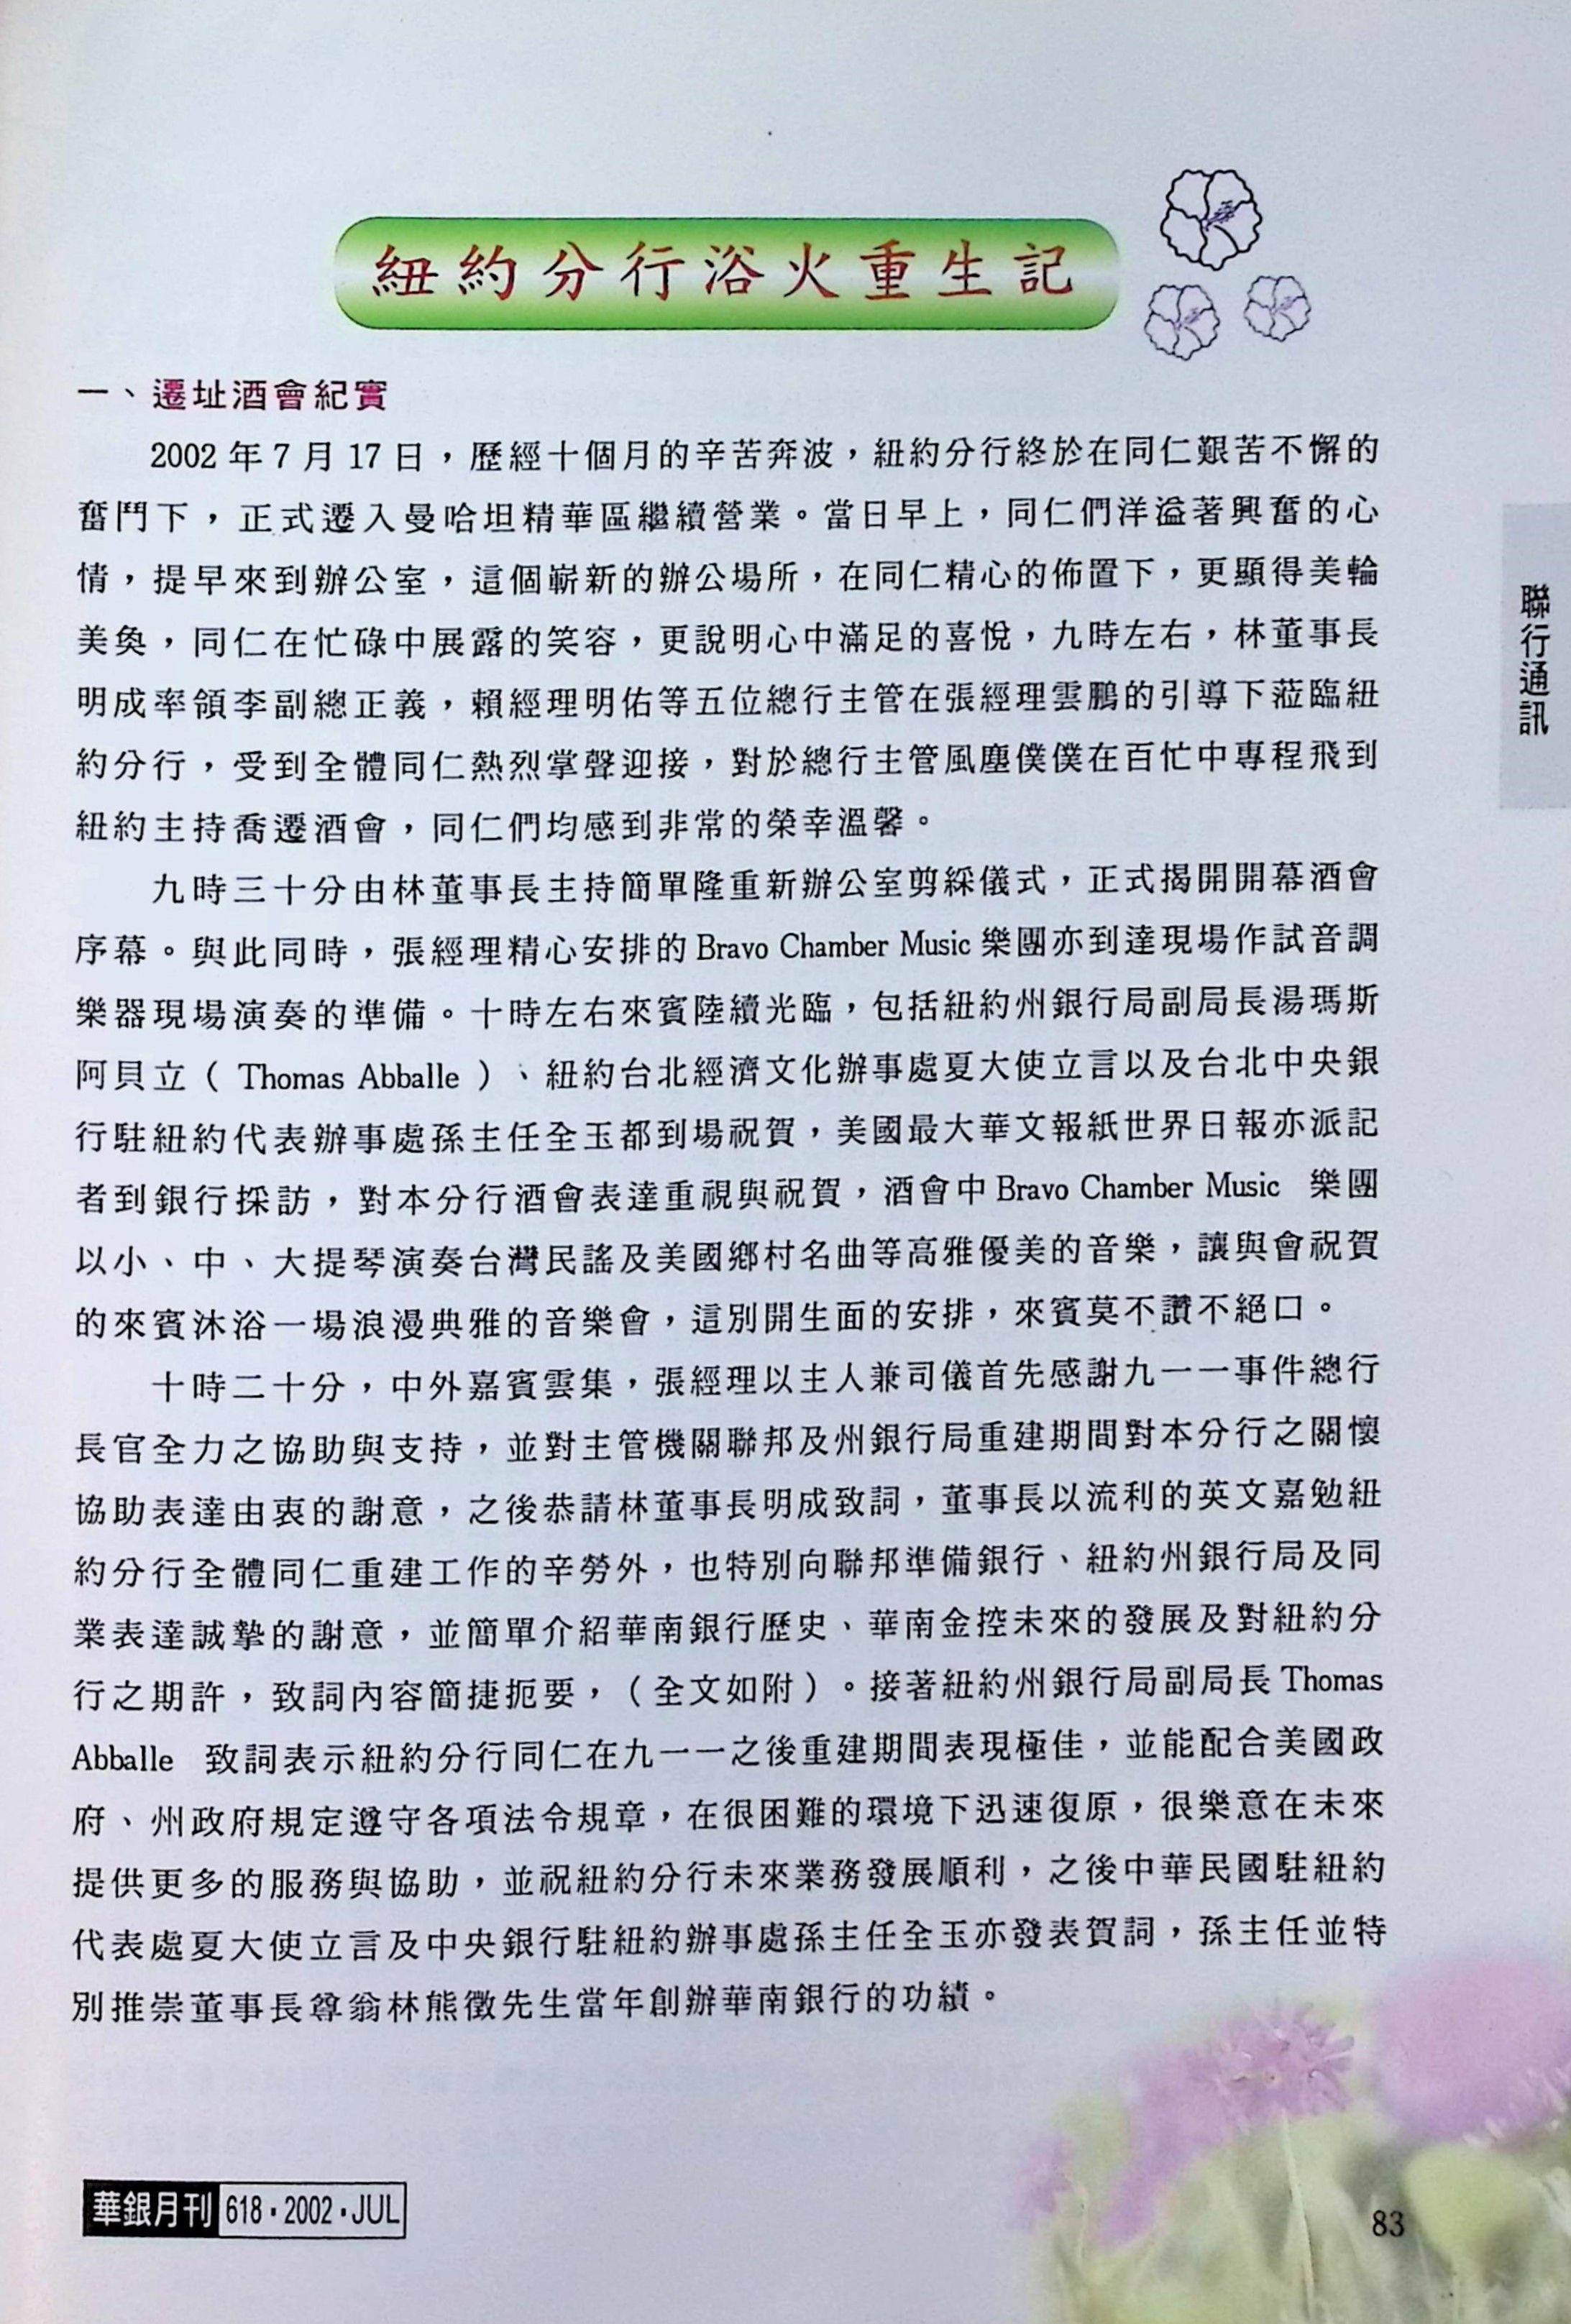 紐約分行浴火重生記
一、遷址酒會紀實
2002 年 7 月 17 日，歷經十個月的辛苦奔波，紐約分行終於在同仁艱苦不懈的
奮鬥下，正式遷入曼哈坦精華區繼續營業。當日早上，同仁們洋溢著興奮的心
情，提早來到辦公室，這個嶄新的辦公場所，在同仁精心的佈置下，更顯得美輪
美奐，同仁在忙碌中展露的笑容，更說明心中滿足的喜悅，九時左右，林董事長
明成率領李副總正義，賴經理明佑等五位總行主管在張經理雲鵬的引導下蒞臨紐
約分行，受到全體同仁熱烈掌聲迎接，對於總行主管風塵僕僕在百忙中專程飛到
紐約主持喬遷酒會，同仁們均感到非常的榮幸溫馨。
九時三十分由林董事長主持簡單隆重新辦公室剪綵儀式，正式揭開開幕酒會
序幕。與此同時，張經理精心安排的 Bravo Chamber Music 樂團亦到達現場作試音調
樂器現場演奏的準備。十時左右來賓陸續光臨，包括紐約州銀行局副局長湯瑪斯
阿貝立（ Thomas Abballe ）、紐約台北經濟文化辦事處夏大使立言以及台北中央銀
行駐紐約代表辦事處孫主任全玉都到場祝賀，美國最大華文報紙世界日報亦派記
者到銀行採訪，對本分行酒會表達重視與祝賀，酒會中 Bravo Chamber Music 樂團
以小、中、大提琴演奏台灣民謠及美國鄉村名曲等高雅優美的音樂，讓與會祝賀
的來賓沐浴一場浪漫典雅的音樂會，這別開生面的安排，來賓莫不讚不絕口。
十時二十分，中外嘉賓雲集，張經理以主人兼司儀首先感謝九一一事件總行
長官全力之協助與支持，並對主管機關聯邦及州銀行局重建期間對本分行之關懷
協助表達由衷的謝意，之後恭請林董事長明成致詞，董事長以流利的英文嘉勉紐
約分行全體同仁重建工作的辛勞外，也特別向聯邦準備銀行、紐約州銀行局及同
業表達誠摯的謝意，並簡單介紹華南銀行歷史、華南金控未來的發展及對紐約分
行之期許，致詞內容簡捷扼要，（全文如附）。接著紐約州銀行局副局長 Thomas
Abballe 致詞表示紐約分行同仁在九一一之後重建期間表現極佳，並能配合美國政
府、州政府規定遵守各項法令規章，在很困難的環境下迅速復原，很樂意在未來
提供更多的服務與協助，並祝紐約分行未來業務發展順利，之後中華民國駐紐約
代表處夏大使立言及中央銀行駐紐約辦事處孫主任全玉亦發表賀詞，孫主任並特
別推崇董事長尊翁林熊徵先生當年創辦華南銀行的功績。
聯行通訊
華銀月刊 618‧2002‧JUL
83